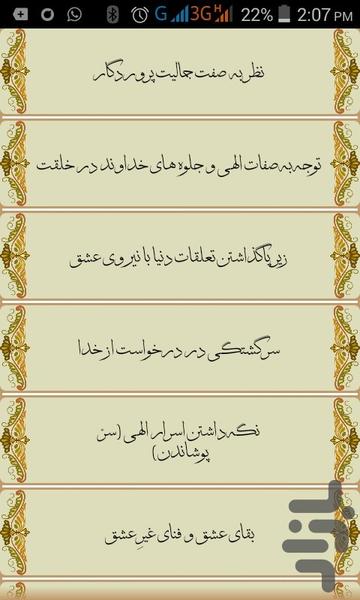 G 3G H 22% 2:07 PM
نظر به صفت جمالیت پروردگار
توجه به صفات الهی و جلوه های خداوند در خلقت
زیر پا گذاشتن تعلقات دنیا با نیروی عشق
سرگشتگی در درخواست از خدا
نگه داشتن اسرار الهی (سن
پوشاندن)
بقای عشق و فنای غیرِ عشق
بازار